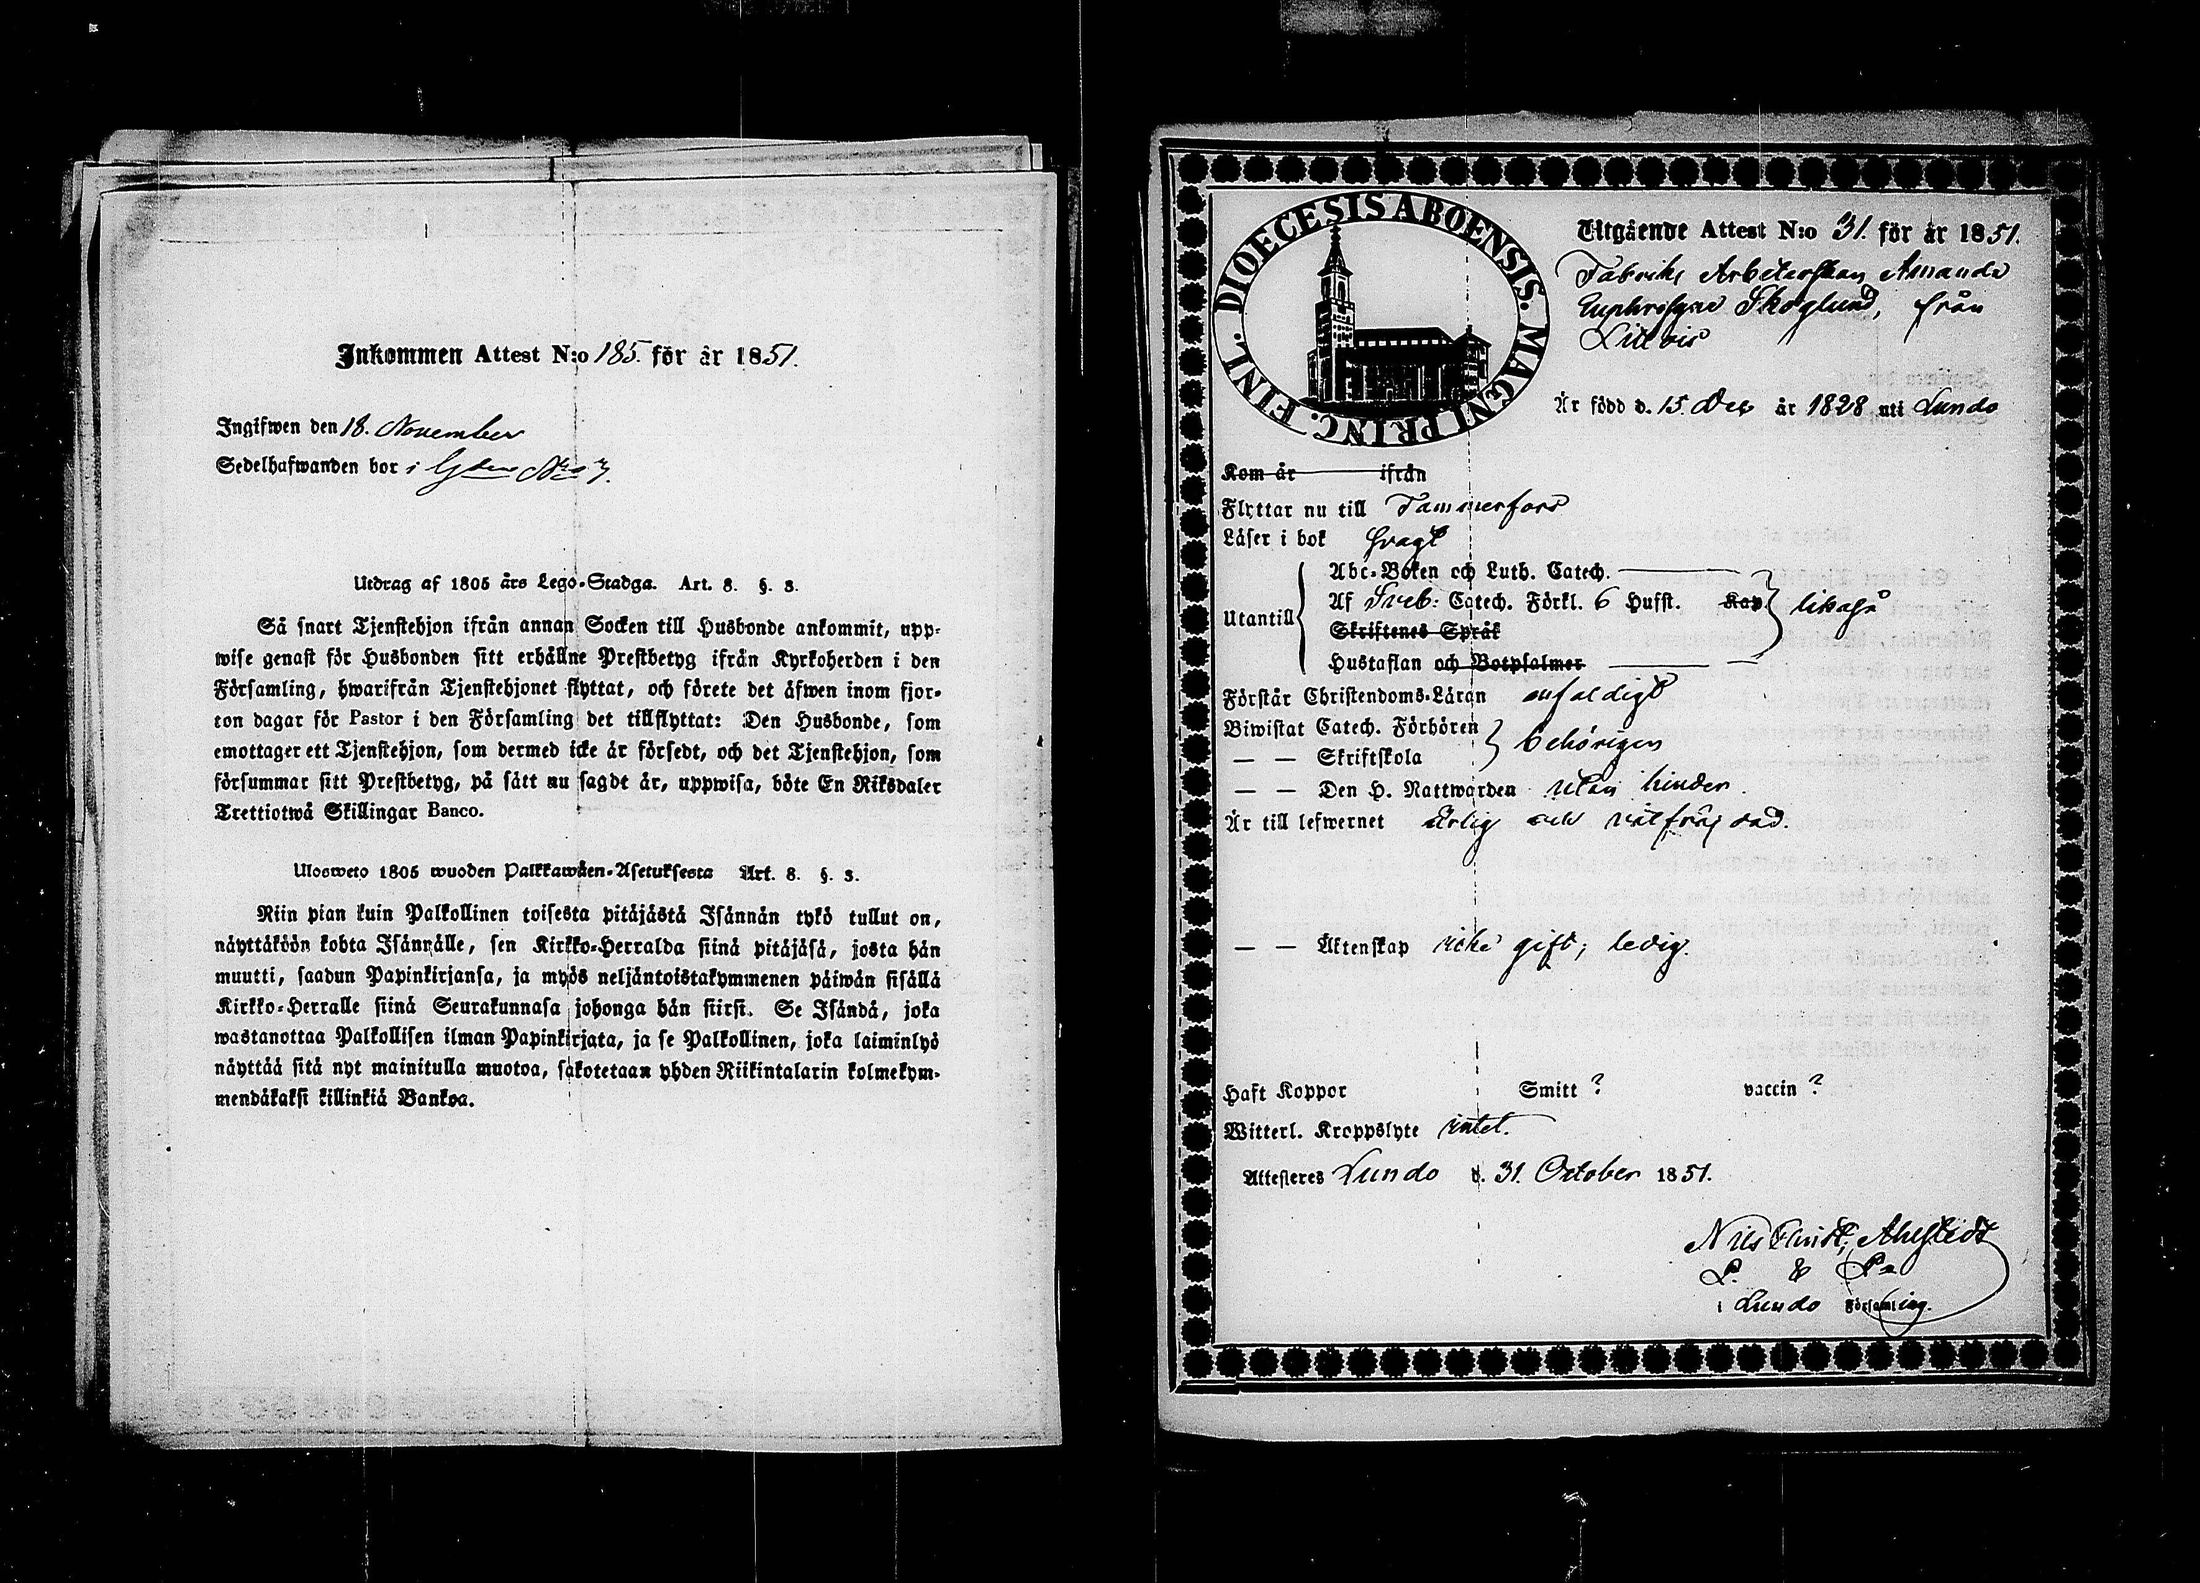 Inkommen Attest N:o 185. för år 1851.
Ingifwen den 18. November
Sedelhafwanden bor i
Utdrag af 1805 års Lego-Stadga. Art. 8. §. 3.
Så snart Tjenstehjon ifrån annan Socken till Husbonde ankommit, upp-
wise genast för Husbonden sitt erhållne Prestbetyg ifrån Kyrkoherden i den
Församling, hwarifrån Tjenstehjonet flyttat, och förete det äfwen inom fjor-
ton dagar för Pastor i den Församling det tillflyttat: Den Husbonde, som
emottager ett Tjenstehjon, som dermed icke är försedt, och det Tjenstehjon, som
försummar sitt Prestbetyg, på sätt nu sagdt är, uppwisa, böte En Riksdaler
Trettiotwå Skillingar Banco.
Ulosweto 1805 wuoden Palkkawäen-Asetuksesta Art. 8. §. 3.
Niin pian kuin Palkollinen toisesta pitäjästä Isännän tykö tullut on,
näyttäköön kohta Isännälle, sen Kirkko-Herralda siinä pitäjäsä, josta hän
muutti, saadun Papinkirjansa, ja myös neljäntoistakymmenen päiwän sisällä
Kirkko-Herralle siinä Seurakunnasa johonga hän siirsi. Se Isändä, joka
wastanottaa Palkollisen ilman Papinkirjata, ja se Palkollinen, joka laiminlyö
näyttää sitä nyt mainitulla muotoa, sakotetaan yhden Riikintalarin kolmekym-
mendäkaksi killinkiä Bankoa.
DIOECESIS ABOENSIS. MAGNI PRINC. FINL.
Utgående Attest N:o 31. för år 1851.
Fabriks Arbeterskan Amanda
Euphrosyne Skoglund, från
Littois
Är född d. 15. Dec år 1828 uti Lundo
Kom år ifrån
Flyttar nu till Tammerfors
Läser i bok svagt
Abc-Boken och Luth. Catech.
Utantill Af Sveb: Catech. Förkl. 6 Hufst. Kap likaså
Skriftenes Språk
Hustaflan och Botpsalmer
Förstår Christendoms-Läran enfaldigt
Biwistat Catech. Förhören behörigen
— — Skriftskola
— — Den H. Nattwarden utan hinder.
Är till lefwernet ärlig och välfrägdad.
— — Äktenskap icke gift, ledig.
Haft Koppor Smitt ? vaccin ?
Witterl. Kroppslyte intet.
Attesteres Lundo d. 31. October 1851.
Nils Christ. Ahlstedt
i Lundo Församling.